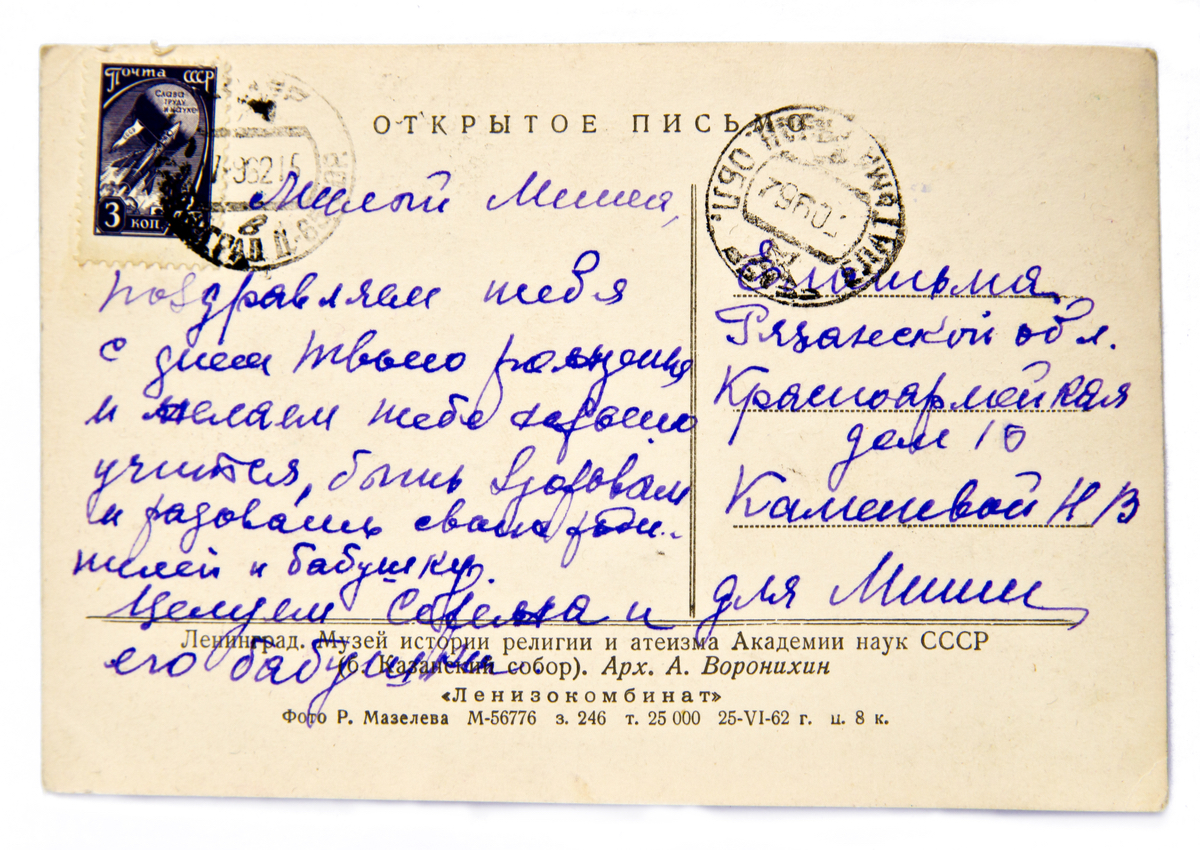 Почта СССР
Слава
труду
и науке
3 коп.
ОТКРЫТОЕ ПИСЬМО
Милый Миша,
поздравляем тебя
с днем твоего рождения
и желаем тебе хорошо
учится, быть здоровым
и радовать своих роди-
телей и бабушку.
Целуем и
его бабушка.
Елатьма
Рязанской обл.
Красноармейская
дом 10
Каменевой Н В
для Миши
Ленинград. Музей истории религии и атеизма Академии наук СССР
(б. Казанский собор). Арх. А. Воронихин
«Ленизокомбинат»
Фото Р. Мазелева М-56776 з. 246 т. 25 000 25-VI-62 г. ц. 8 к.